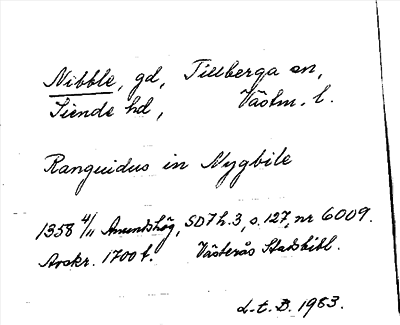 Nibble, gd, Tillberga sn,
Siende hd, Västm. l.
Ranguidus in Nygbile
1358 4/11 Amundshög, SD 7 h. 3, s. 127, nr 6009.
Avskr. 1700 t. Västerås Stadsbibl.
L. E. D. 1983.